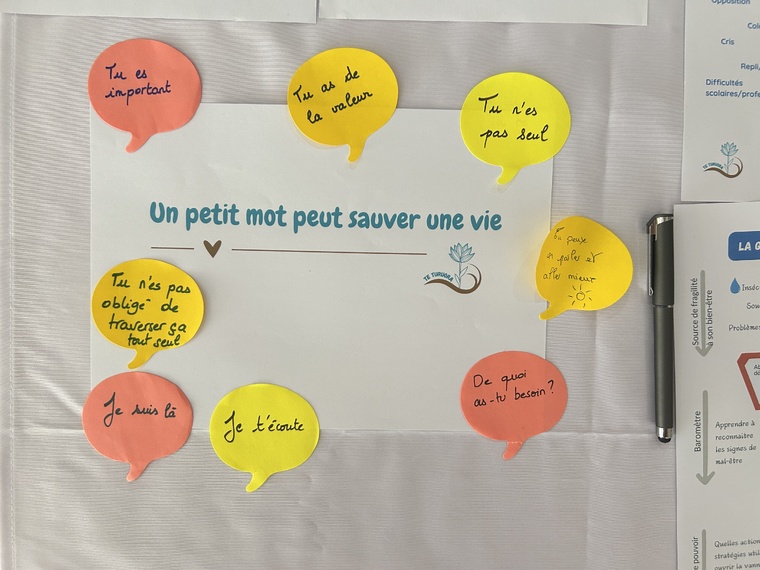 Tu es
important
Tu as de
la valeur
Tu n'es
pas seul
Un petit mot peut sauver une vie
TE TURUORA
Tu n'es pas
obligé de
traverser ça
tout seul
en parler et
aller mieux
Je suis là
Je t'écoute
De quoi
as-tu besoin ?
Opposition
Cris
Repli,
Difficultés
scolaires/profe
LA G
Source de fragilité
à son bien-être
Insé
Sou
Problèmes
Baromètre
Apprendre à
reconnaitre
les signes de
mal-être
pouvoir
Quelles action
stratégies util
ouvrir la vann